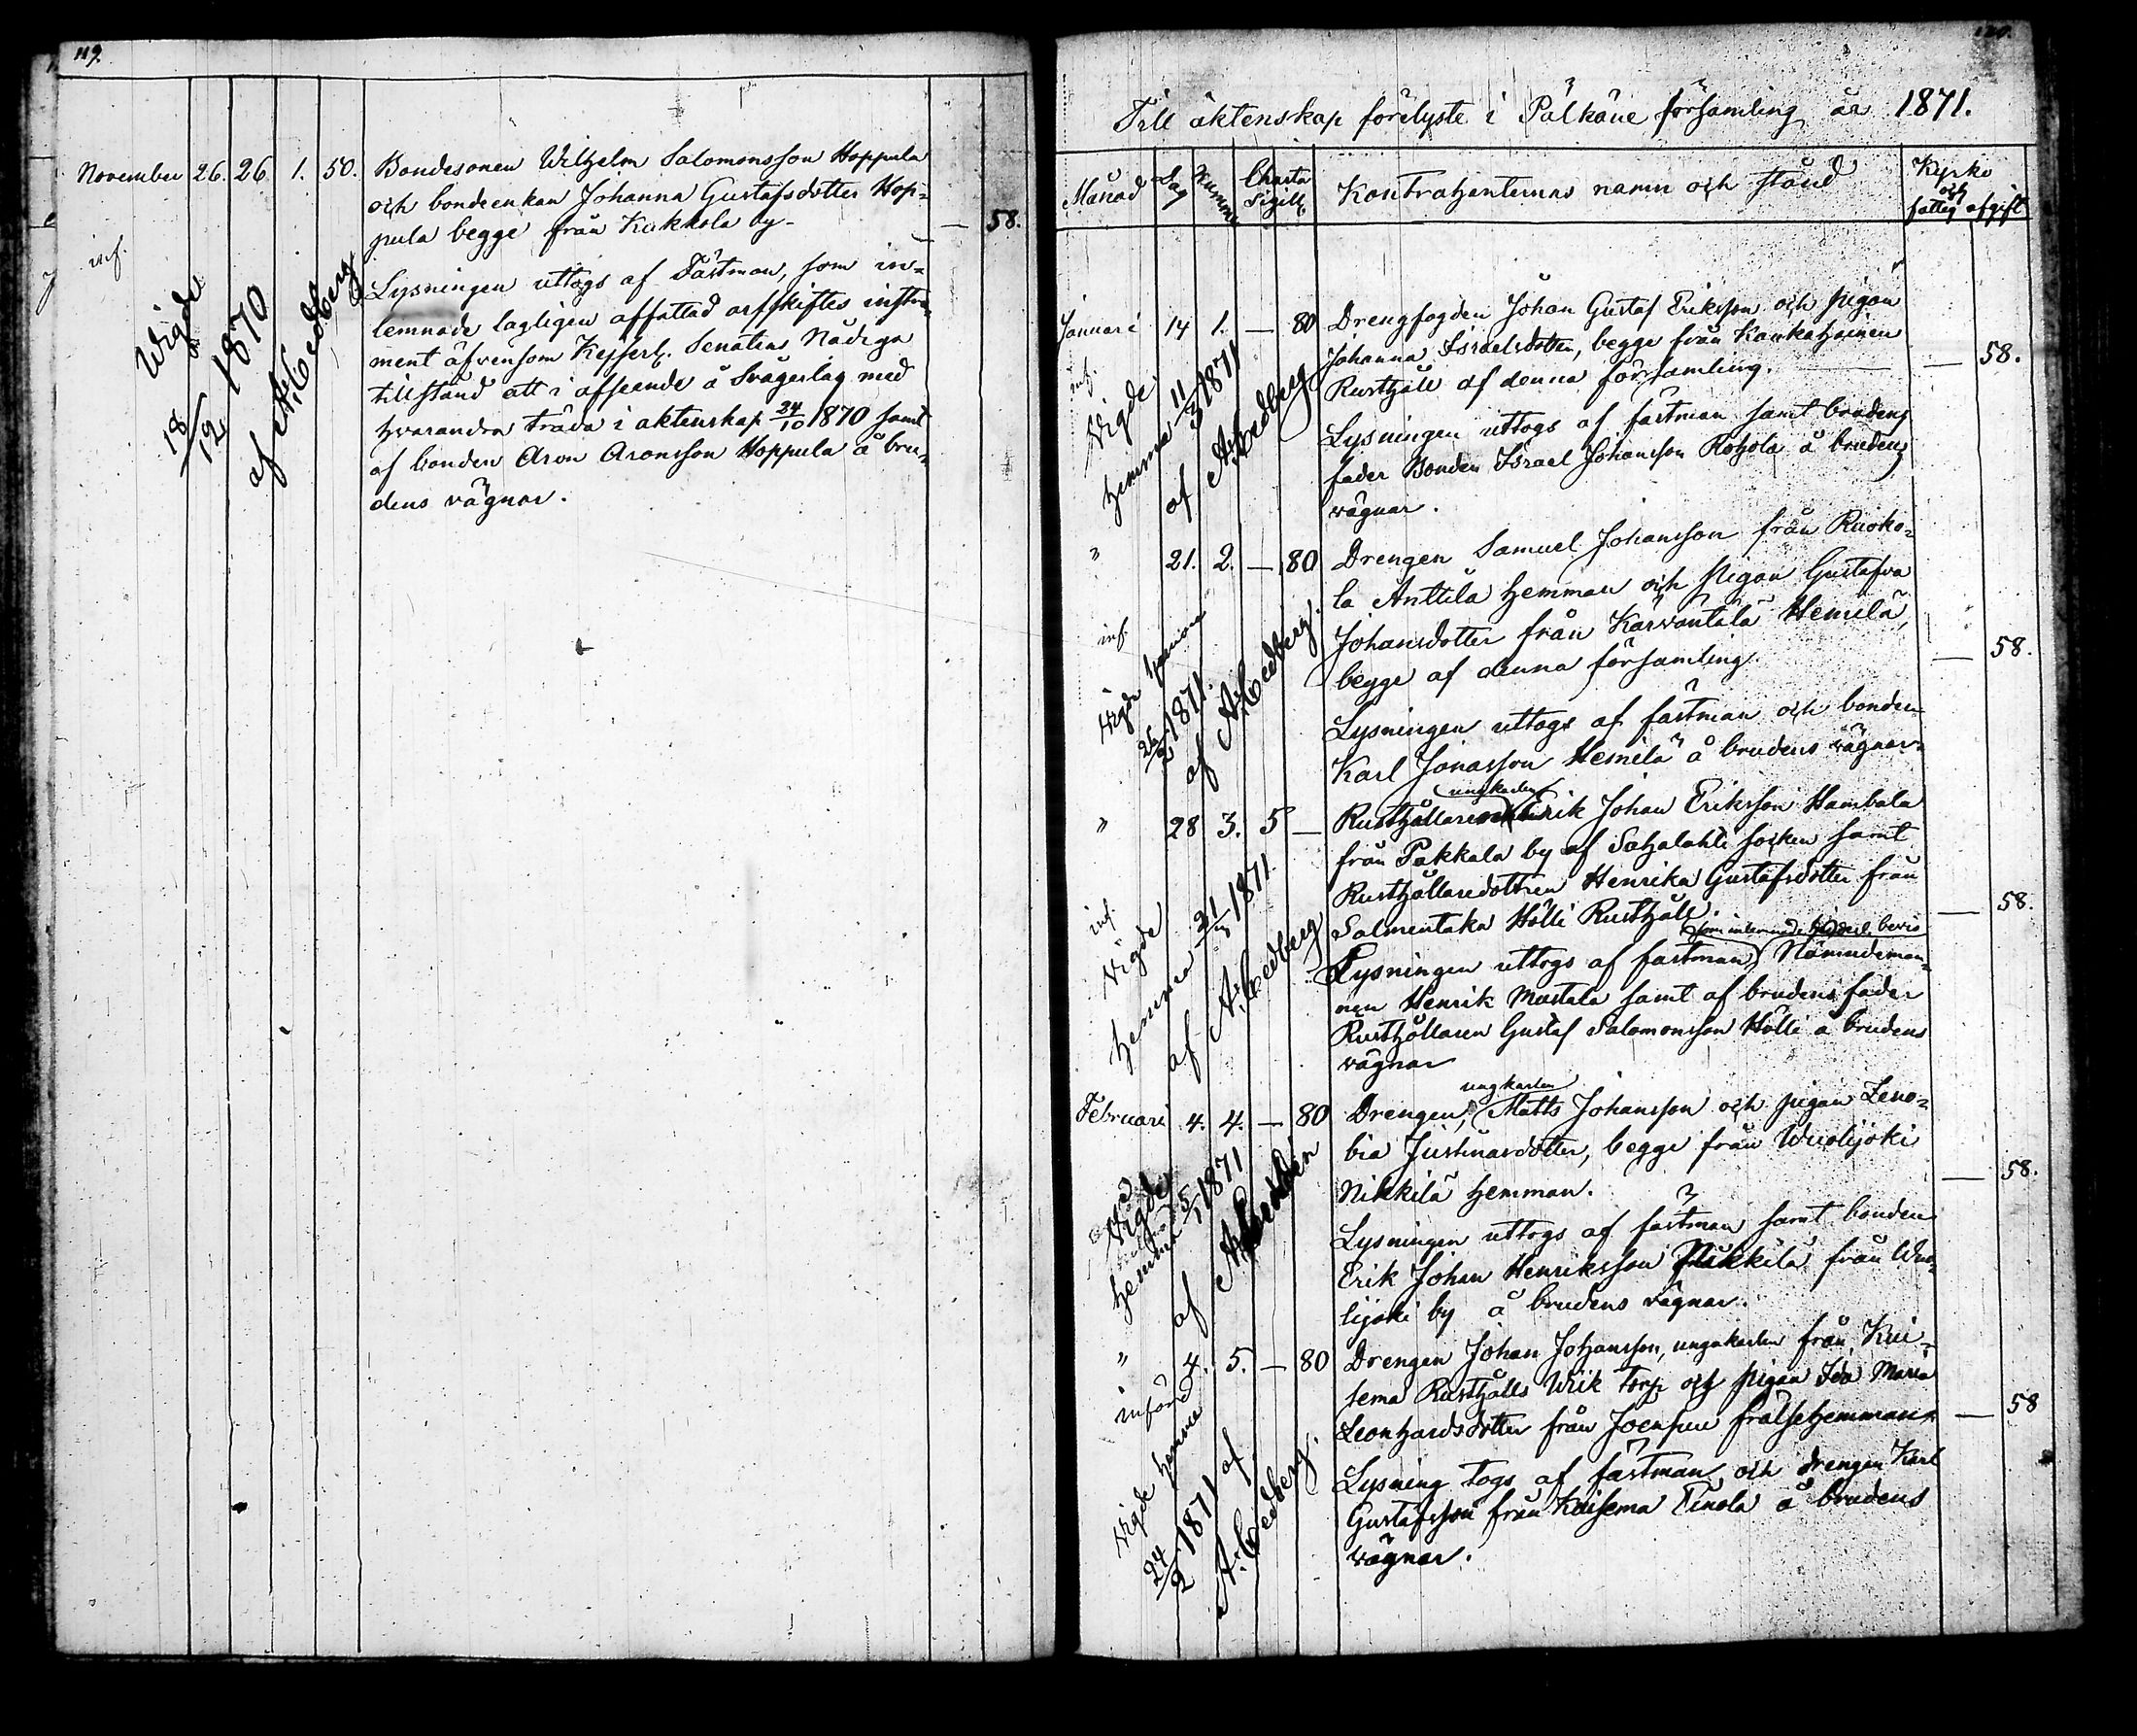 119.
November 26. 26. 1. 50. Bondesonen Wilhelm Salomonsson Hoppula
och bondeenkan Johanna Gustafsdotter Hop-
pula begge från Kukkola by — 58.
inf.
Lysningen uttogs af Fästman, som in-
lemnade lagligen affattad arfskiftes instru-
ment äfvensom Kejserl. Senatens Nådiga
tillstånd att i afseende å Svågerlag med
hvarandra träda i äktenskap 24/10 1870 samt
af bonden Aron Aronsson Hoppula å bru-
dens vägnar.
Wigde
18/12 1870
af A. Cedberg
120.
Till äktenskap förelyste i Pälkäne församling år 1871.
Månad Dag Nummer Charta Sigill. Kontrahenternas namn och stånd Kyrko
och
fattig afgift
Januari 14 1. — 80 Drengfogden Johan Gustaf Eriksson och pigan
Johanna Israelsdotter, begge från Kankahoinen
Rusthåll af denna församling. — 58.
inf.
Wigde
hemma 11/3 1871
af A. Cedberg
Lysningen uttogs af fästman samt brudens
fader Bonden Israel Johansson Rohola å brudens
vägnar.
" 21. 2. — 80 Drengen Samuel Johansson från Ruoko-
la Anttila hemman och pigan Gustafva
Johansdotter från Kärväntälä Hemilä,
begge af denna församling. — 58.
inf.
Wigde hemma
1871.
af A. Cedberg.
Lysningen uttogs af fästman och bonden
Karl Jonasson Hemilä å brudens vägnar.
ungkarlen
" 28 3. 5 — Rusthållaresonen Erik Johan Eriksson Hambala
från Pakkala by af Sahalahti socken samt
Rusthållaredottren Henrika Gustafsdotter från
Salmentaka Hölli Rusthåll. — 58.
inf.
Wigde
hemma 21/3 1871
af A. Cedberg
som inlemnade bevis
Lysningen uttogs af fästman, Nämndeman-
nen Henrik Mustala samt af brudens fader
Rusthållaren Gustaf Salomonsson Hölli å brudens
vägnar
ungkarlen
Februari 4. 4. — 80 Drengen, Matts Johansson och pigan Zeno-
bia Justinasdotter, begge från Wuolijoki
Nikkilä hemman. — 58.
Wigde
hemma 1871
af
Lysningen uttogs af fästman samt bonden
Erik Johan Henriksson Nikkilä från Wuo-
lijoki by å brudens vägnar.
" 4. 5. — 80 Drengen Johan Johansson, ungkarlen från Kui-
sema Rusthålls Wiik torp och pigan Ida Maria
Leonhardsdotter från Joensuu frälsehemman — 58
införd
Wigde hemma
24/2 1871 af
A. Cedberg.
Lysning togs af fästman, och drengen Karl
Gustafsson från Kuisema Tinola å brudens
vägnar.